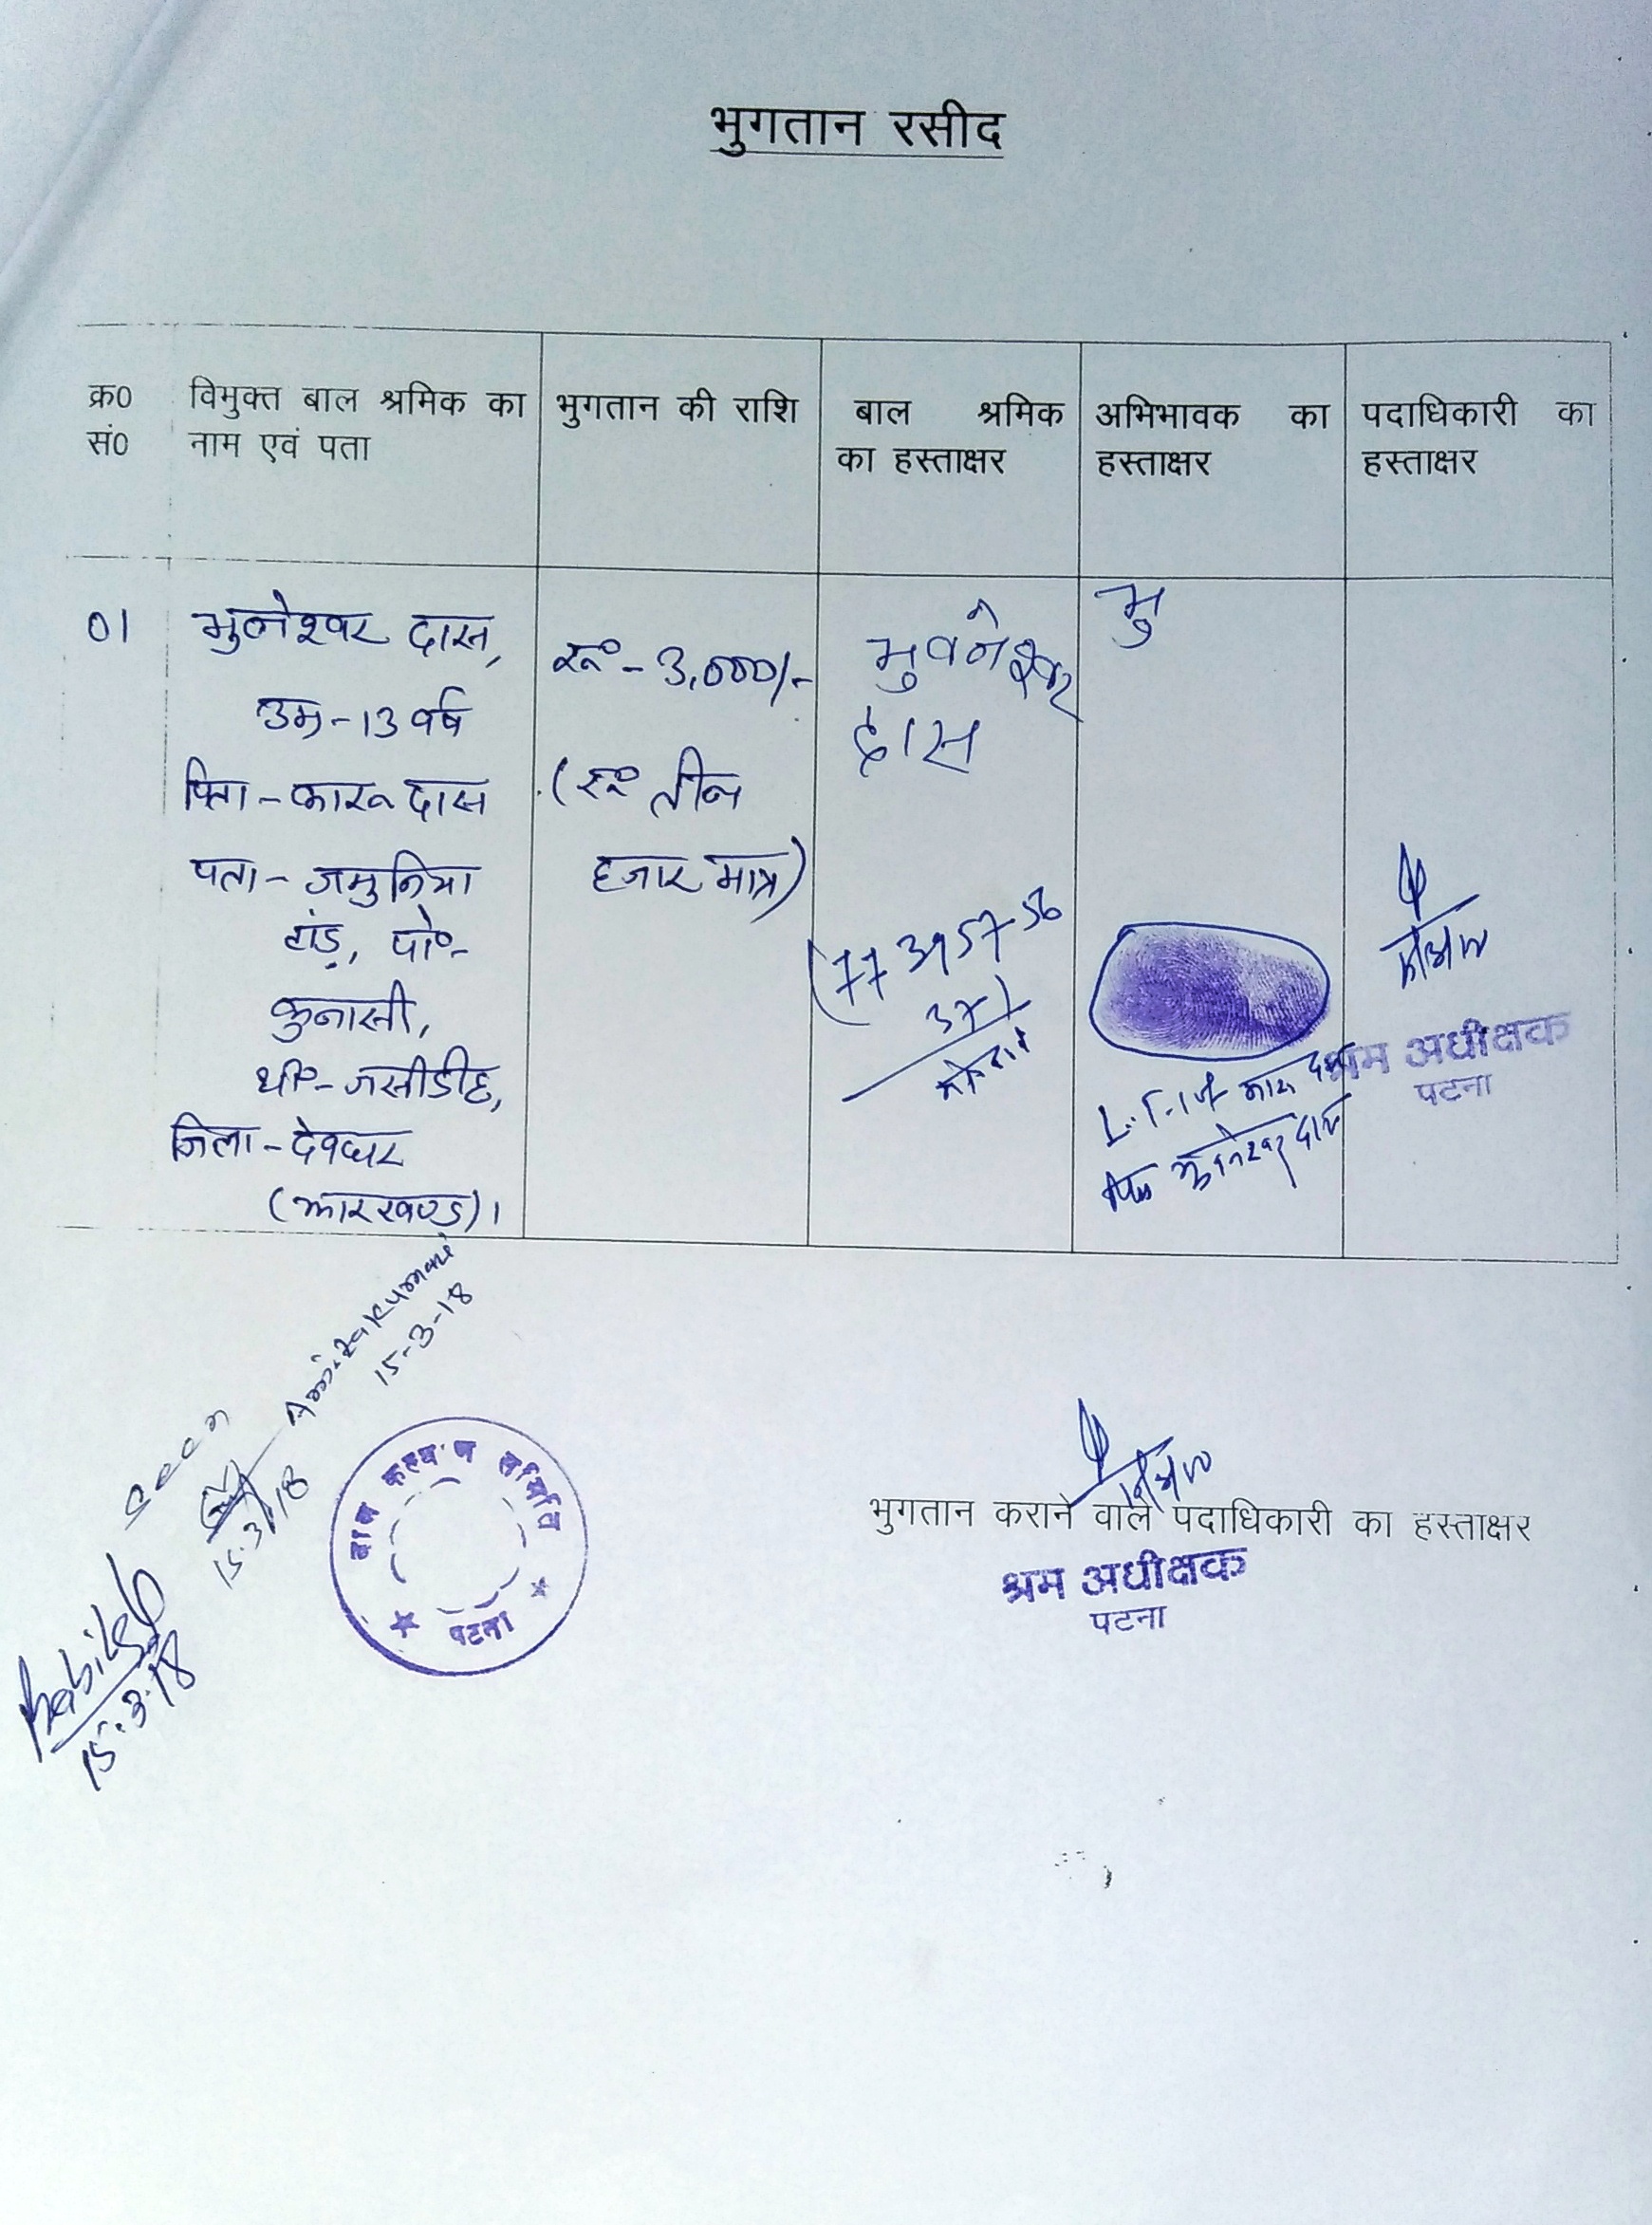 भुगतान रसीद
क्र0 सं0
विमुक्त बाल श्रमिक का
नाम एवं पता
भुगतान की राशि
बाल श्रमिक
का हस्ताक्षर
अभिभावक का
हस्ताक्षर
पदाधिकारी का
हस्ताक्षर
01
भुवनेश्वर दास,
उम्र-13 वर्ष
पिता-कारू दास
पता-जमुनिया
टांड़, पो०-
कुनासी,
थाo-जसीडीह,
जिला-देवघर
(झारखण्ड)।
रू०-3,000/-
(रू० तीन
हजार मात्र)
भुवनेश्वर
दास
(77 39 57-56
37)
मो०
भु
L.T.I of कारू दास
पिता भुवनेश्वर दास
श्रम अधीक्षक
पटना
Amita Kumari
15-3-18
Seen
15.3.18
15.3.18
बाल कल्याण समिति
पटना
भुगतान कराने वाले पदाधिकारी का हस्ताक्षर
श्रम अधीक्षक
पटना